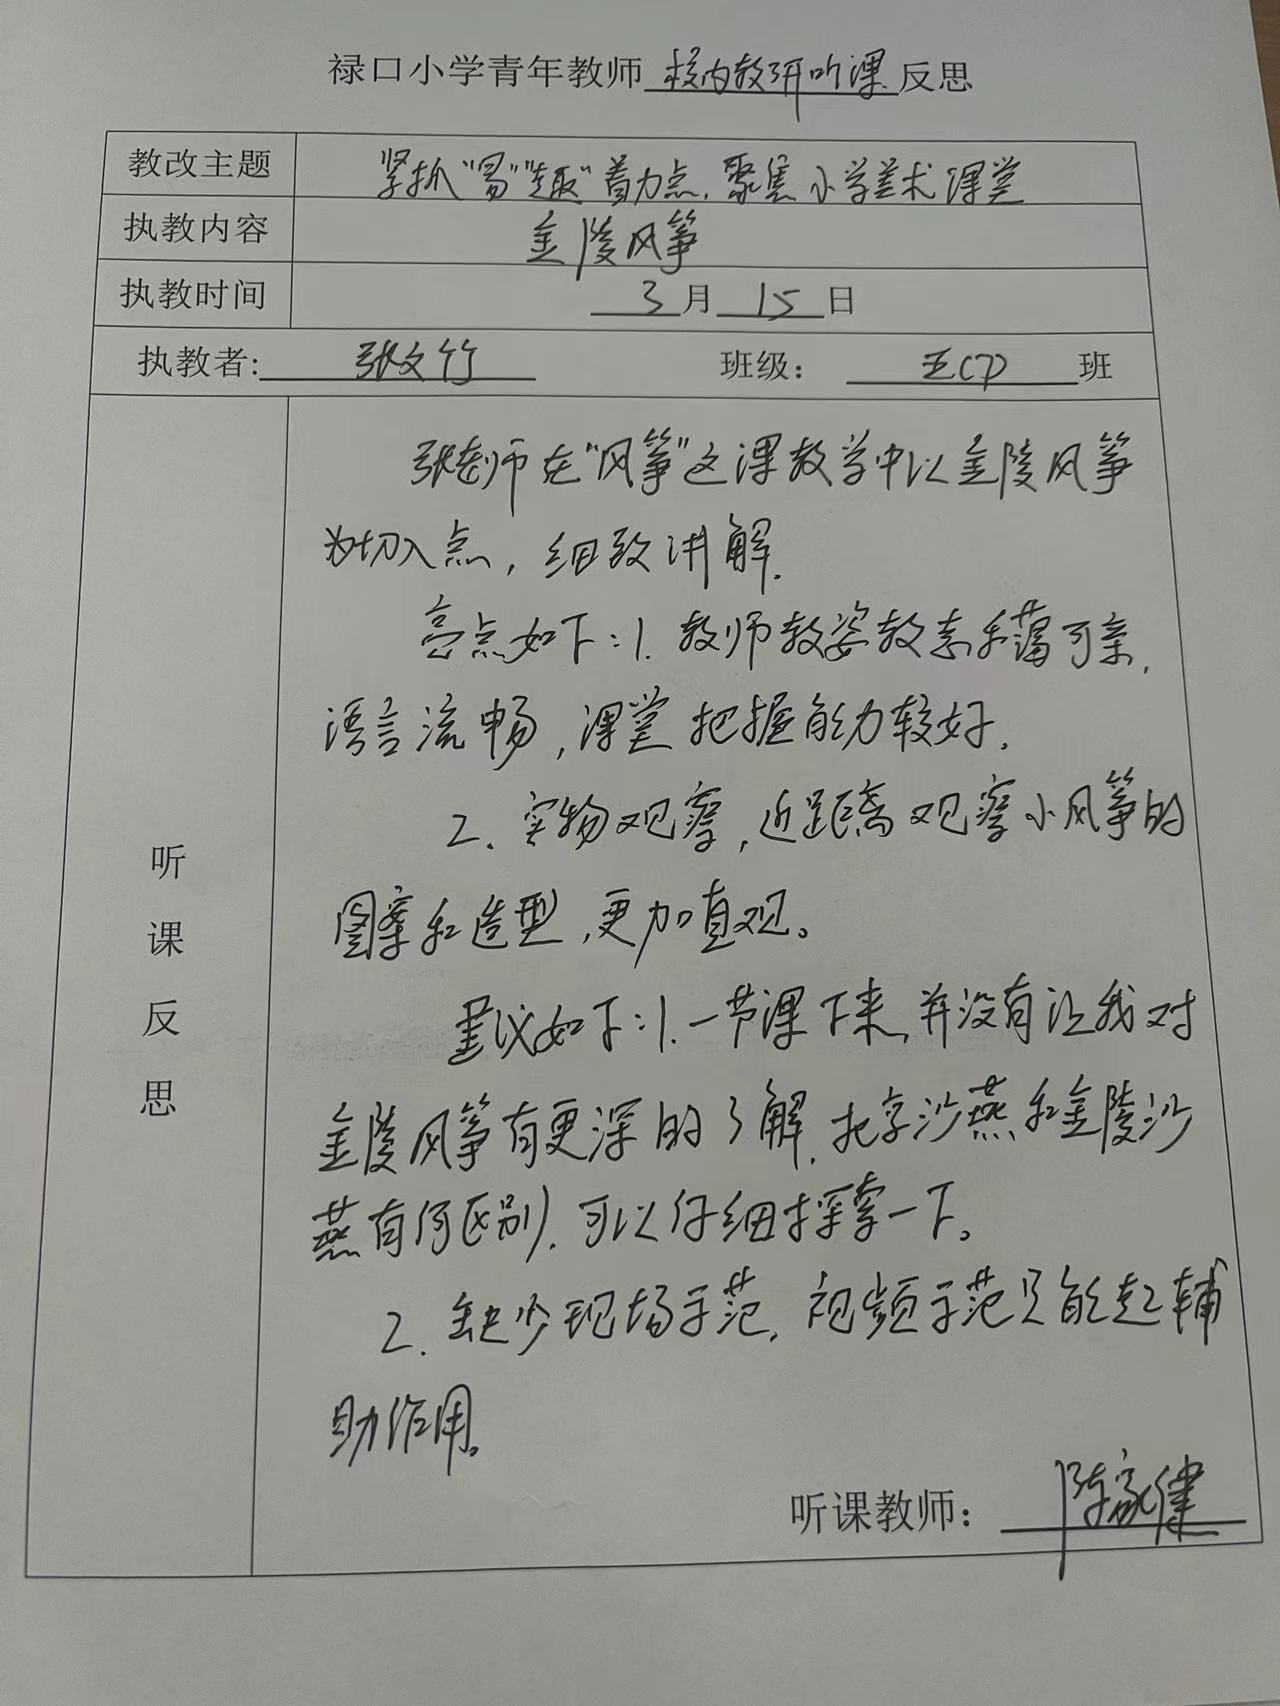 禄口小学青年教师校内教研听课反思
教改主题 紧抓“易”“趣”着力点,聚焦小学美术课堂
执教内容 金陵风筝
执教时间 3月15日
执教者: 张文竹 班级: 五(7)班
听课反思
张老师在“风筝”这课教学中以金陵风筝
为切入点,细致讲解.
亮点如下:1.教师教姿教态和蔼可亲,
语言流畅,课堂把握能力较好.
2.实物观察,近距离观察小风筝的
图案和造型,更加直观。
建议如下:1.一节课下来,并没有让我对
金陵风筝有更深的了解,北京沙燕和金陵沙
燕有何区别,可以仔细探索一下。
2.缺少现场示范,视频示范只能起辅
助作用。
听课教师: 陈家健